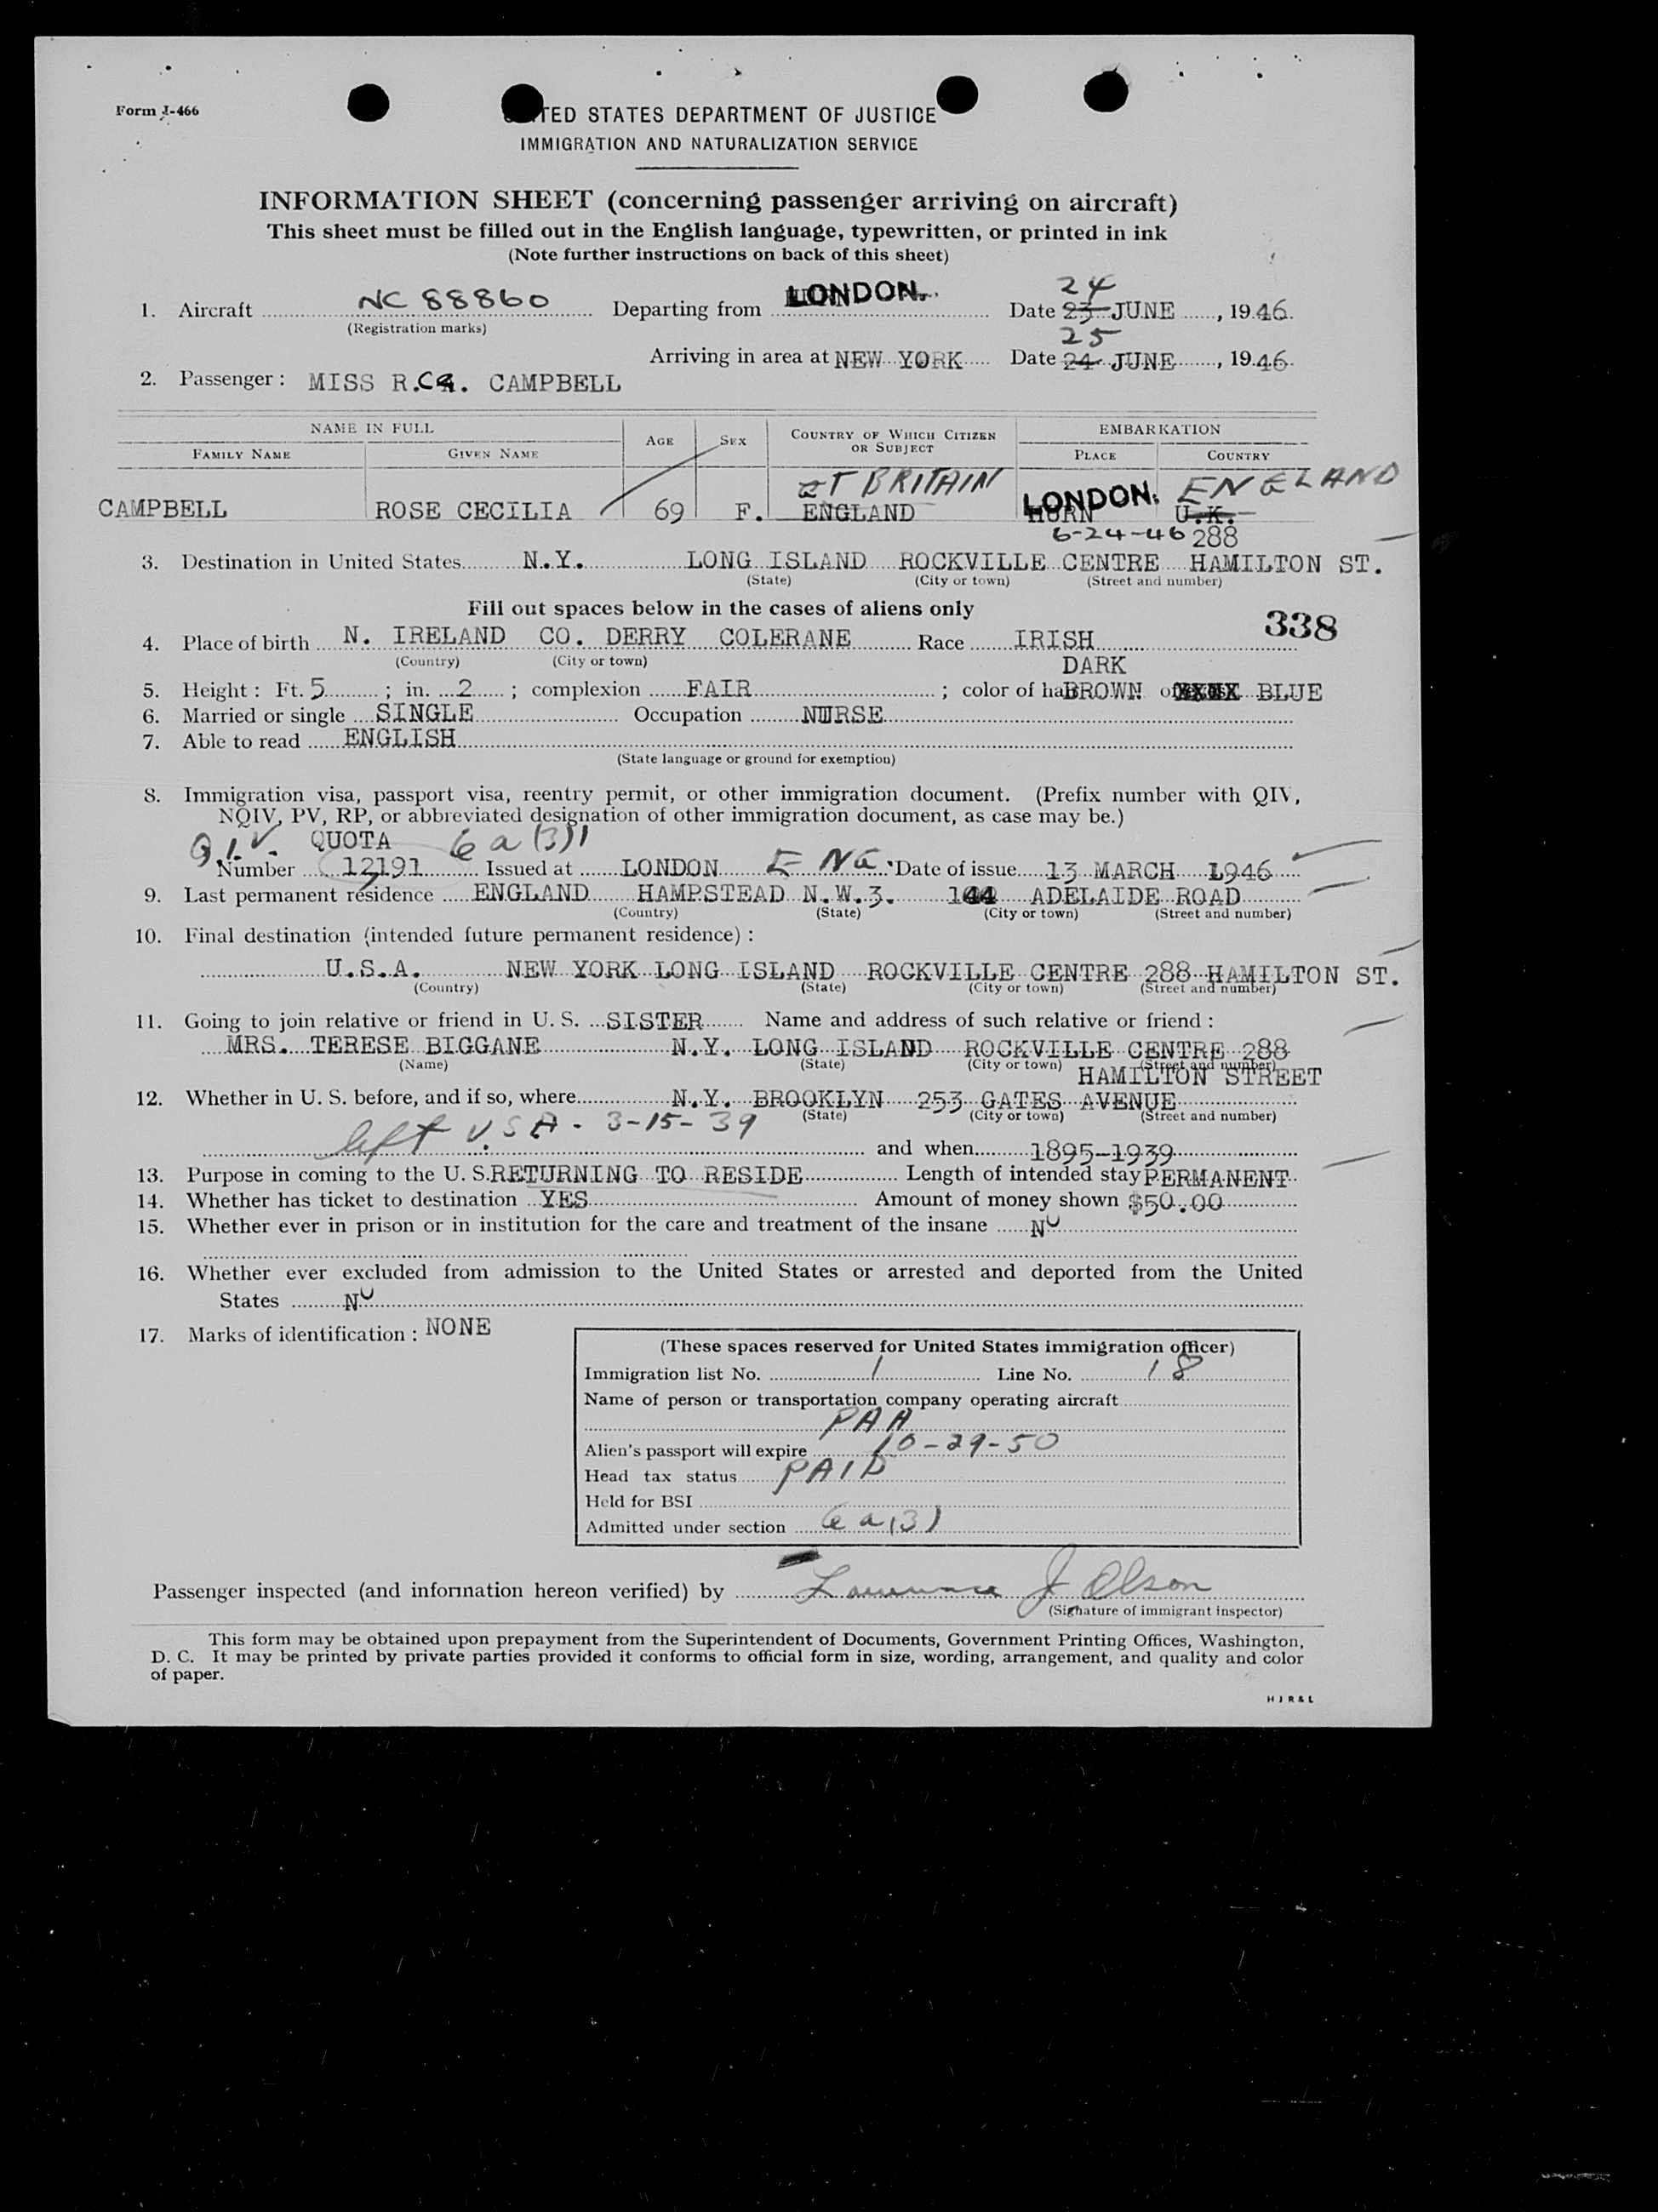 Form I-466
UNITED STATES DEPARTMENT OF JUSTICE
IMMIGRATION AND NATURALIZATION SERVICE
INFORMATION SHEET (concerning passenger arriving on aircraft)
This sheet must be filled out in the English language, typewritten, or printed in ink
(Note further instructions on back of this sheet)
24
1. Aircraft NC 88860 Departing from LONDON. Date 23 JUNE, 1946.
(Registration marks)
25
Arriving in area at NEW YORK Date 24 JUNE, 1946.
2. Passenger: MISS R.C. CAMPBELL
NAME IN FULL AGE SEX COUNTRY OF WHICH CITIZEN OR SUBJECT EMBARKATION
FAMILY NAME GIVEN NAME PLACE COUNTRY
GT BRITAIN LONDON. ENGLAND
CAMPBELL ROSE CECILIA 69 F. ENGLAND HURN U.K.
6-24-46 288
3. Destination in United States N.Y. LONG ISLAND ROCKVILLE CENTRE HAMILTON ST.
(State) (City or town) (Street and number)
Fill out spaces below in the cases of aliens only
338
4. Place of birth N. IRELAND CO. DERRY COLERANE Race IRISH
(Country) (City or town)
DARK
5. Height: Ft. 5; in. 2; complexion FAIR; color of hair BROWN of eyes BLUE
6. Married or single SINGLE Occupation NURSE
7. Able to read ENGLISH
(State language or ground for exemption)
8. Immigration visa, passport visa, reentry permit, or other immigration document. (Prefix number with QIV,
NQIV, PV, RP, or abbreviated designation of other immigration document, as case may be.)
Q.I.V. QUOTA 6a(3)
Number 12191 Issued at LONDON ENG. Date of issue 13 MARCH 1946
9. Last permanent residence ENGLAND HAMPSTEAD N.W.3. 144 ADELAIDE ROAD
(Country) (State) (City or town) (Street and number)
10. Final destination (intended future permanent residence):
U.S.A. NEW YORK LONG ISLAND ROCKVILLE CENTRE 288 HAMILTON ST.
(Country) (State) (City or town) (Street and number)
11. Going to join relative or friend in U. S. SISTER Name and address of such relative or friend:
MRS. TERESE BIGGANE N.Y. LONG ISLAND ROCKVILLE CENTRE 288
(Name) (State) (City or town) (Street and number)
HAMILTON STREET
12. Whether in U. S. before, and if so, where N.Y. BROOKLYN 253 GATES AVENUE
(State) (City or town) (Street and number)
left U.S.A - 3-15-39 and when 1895-1939
13. Purpose in coming to the U. S. RETURNING TO RESIDE Length of intended stay PERMANENT
14. Whether has ticket to destination YES Amount of money shown $50.00
15. Whether ever in prison or in institution for the care and treatment of the insane NO
16. Whether ever excluded from admission to the United States or arrested and deported from the United
States NO
17. Marks of identification: NONE
(These spaces reserved for United States immigration officer)
Immigration list No. 1 Line No. 18
Name of person or transportation company operating aircraft
PAA
Alien's passport will expire 10-29-50
Head tax status PAID
Held for BSI
Admitted under section 6a(3)
Passenger inspected (and information hereon verified) by Lawrence J Olson
(Signature of immigrant inspector)
This form may be obtained upon prepayment from the Superintendent of Documents, Government Printing Offices, Washington,
D. C. It may be printed by private parties provided it conforms to official form in size, wording, arrangement, and quality and color
of paper.
H J R & L